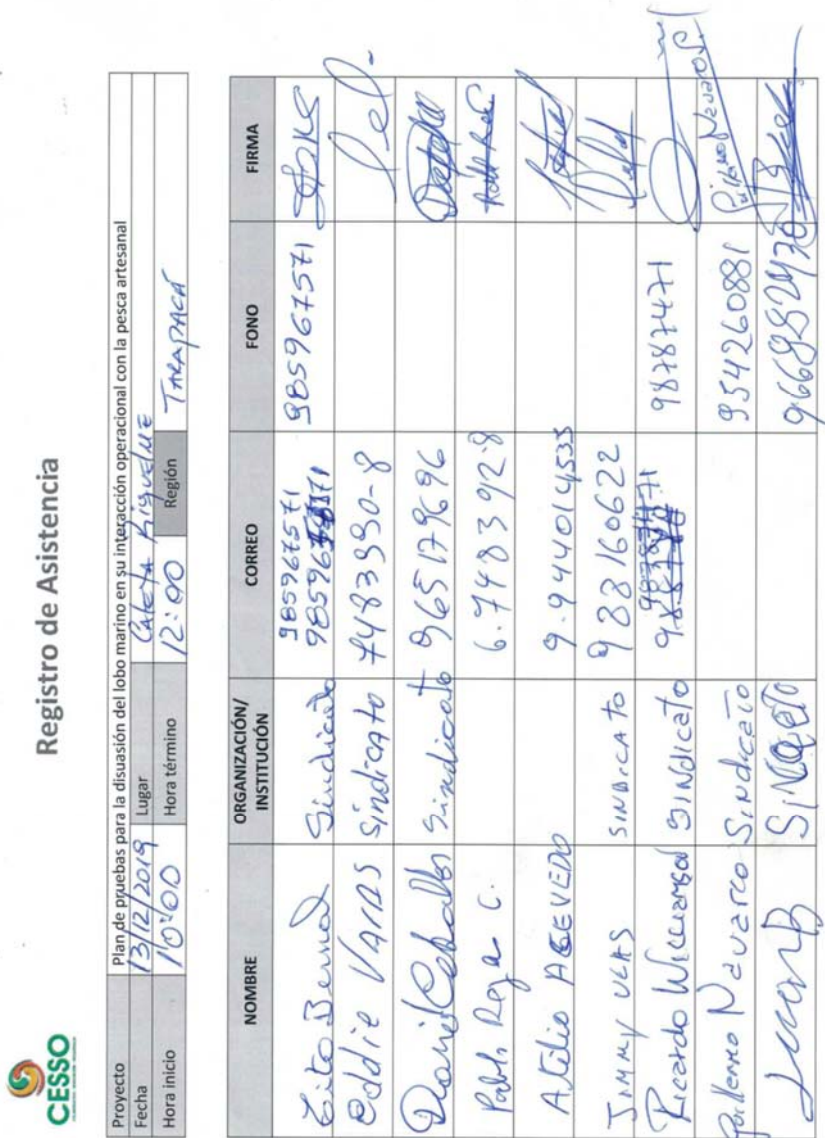 CESSO
Registro de Asistencia
Proyecto Plan de pruebas para la disuasión del lobo marino en su interacción operacional con la pesca artesanal
Fecha 13/12/2019 Lugar Caleta Riquelme
Hora inicio 10:00 Hora término 12:00 Región TARAPACÁ
NOMBRE ORGANIZACIÓN/ INSTITUCIÓN CORREO FONO FIRMA
Tito Bernal Sindicato 985967571 985967571
Eddie VARAS Sindicato 7483990-8
Sindicato 965179696
Pablo Reyes C. 6.748392-8
Atilio ACEVEDO 9.944014535
JIMMY SINDICATO 988160622
Ricardo Williamson SINDICATO 98787471
Guillermo Navarro Sindicato 954260881 Guillermo Navarro
Juan B 966982970